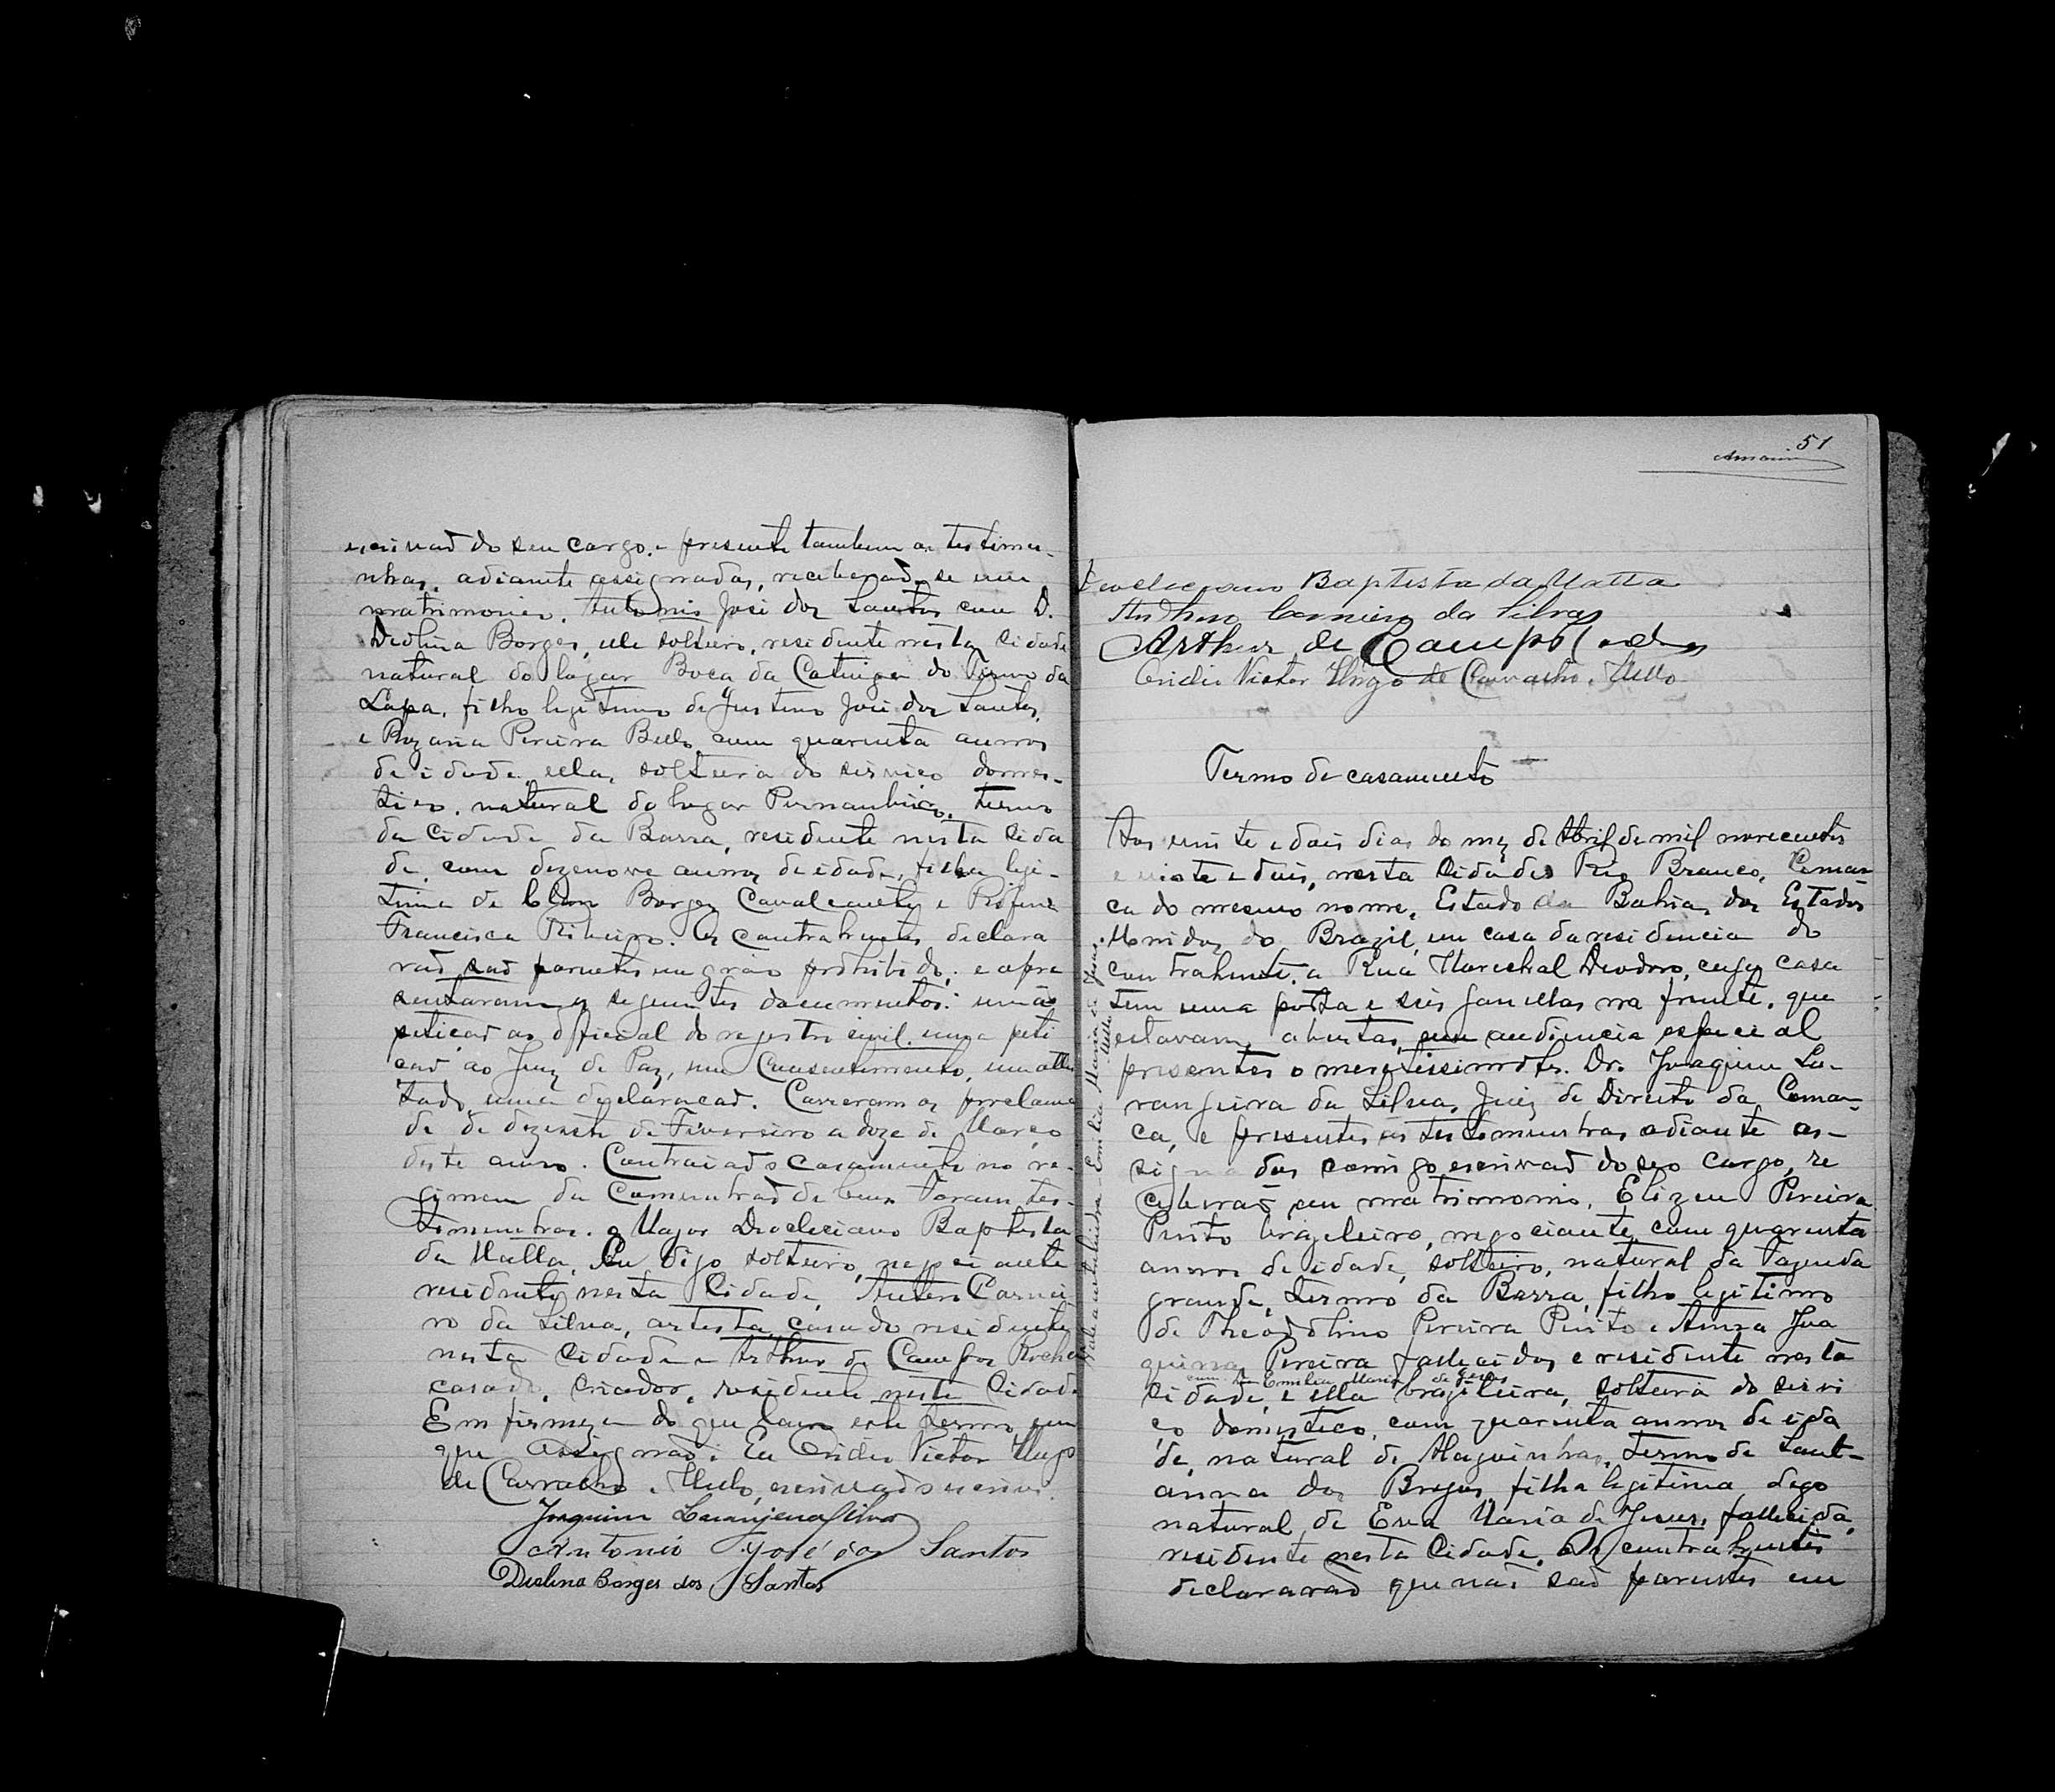 escrivaõ do seu cargo. e presente tambem as testimu-
nhas, adiante assignadas, receberaõ se em
matrimonio. Antonio José dos Santos com D.
Diolina Borges, elle solteiro, residente nesta Cidade
natural do lugar Boca da Catinga do Termo da
Lapa, filho legitimo de Justino José dos Santos,
e Rozaria Pereira Bello, com quarenta annos
de idade, ella, solteira do serviço domes-
tico, natural do lugar Pernambuco, termo
da Cidade da Barra, residente nesta Cida
de, com dezenove annos de idade, filha legi-
tima de Borges Cavalcante e Rofina
Francisca Ribeiro. Os Contrahentes declara
raõ saõ parentes em gráo prohibido; e apre
sentaram os seguintes documentos: uma
petiçaõ ao official do registro civil, uma peti
çaõ ao Juiz de Paz, um Consentimento, um attes
tado uma declaracaõ. Correram os proclama
de de dezesete de Fevereiro a doze de Março
deste anno. Contraiaõ o casamento no re-
gimen da Communhaõ de bens. Foram tes-
timunhas. o Major Diocleciano Baptista
da Matta, digo solteiro, negociante
residente nesta Cidade, Antero Carnei
ro da Silva, artista, casado residente
nesta Cidade e Arthur de Campos Rocha
casado, criador, residente nesta Cidade
Em firmeza do que lavro este termo, em
que assignaõ. Eu Ovidio Victor Hugo
de Carvalho e Mello, escrivaõ o escrevi.
Joaquim Laranjeira Silva
Antonio José dos Santos
Diolina Borges dos Santos
51
Amorim
Diocleciano Baptista da Matta
Anthero Carneiro da Silva
Arthur de Campos
Ovidio Victor Hugo de Carvalho e Mello
Termo de casamento
Aos vinte e dois dias do mez de Abril de mil novecentos
e vinte e dois, nesta Cidade Rio Branco, Comar
ca do mesmo nome, Estado da Bahia, dos Estados
Unidos do Brazil, em casa da residencia do
contrahente, a Rua Marechal Deodoro, cuja casa
tem uma porta e seis janellas na frente, que
estavam abertas, em audiencia especial
presentes o meretissimo Sr. Dr. Joaquim La-
rangeira da Silva, Juiz de Direito da Comar-
ca, e presentes as testemunhas adiante as-
signadas comigo escrivaõ do seo cargo, re
ceberaõ em matrimonio, Elizeu Pereira
Pinto brazileiro, negociante, com quarenta
annos de idade, solteiro, natural da Fazenda
grande, termo da Barra, filho legitimo
de Theodolino Pereira Pinto e Anna Joa
quina Pereira fallecidos e residente nesta
com Da Emilia Maria de Jesus
Cidade, e ella brazileira, solteira do servi
ço domestico, com quarenta annos de ida
de, natural de Alagoinhas, termo de Sant-
anna dos Brejos, filha legitima digo
natural de Eva Maria de Jesus, fallecida,
residente nesta Cidade. Os contrahentes
declararaõ que naõ saõ parentes em
Vale a entrelinha. Emilia Maria de Jesus.
Mello